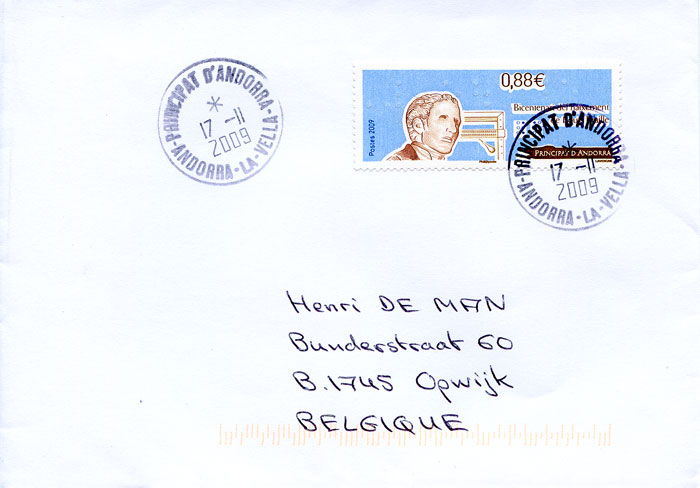 PRINCIPAT D'ANDORRA
17 -11
2009
ANDORRA-LA-VELLA
0,88€
Bicentenari del naixement
Postes 2009
PRINCIPAT D'ANDORRA
PRINCIPAT D'ANDORRA
17 -11
2009
ANDORRA-LA-VELLA
Henri DE MAN
Bunderstraat 60
B.1745 Opwijk
BELGIQUE